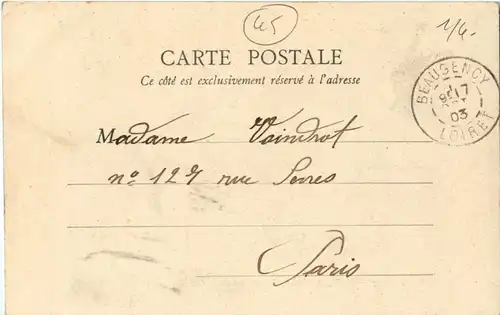 45
1/4.
CARTE POSTALE
Ce côté est exclusivement réservé à l'adresse
BEAUGENCY
17
03
LOIRET
Madame Voindrot
n° 127 rue Sevres
Paris